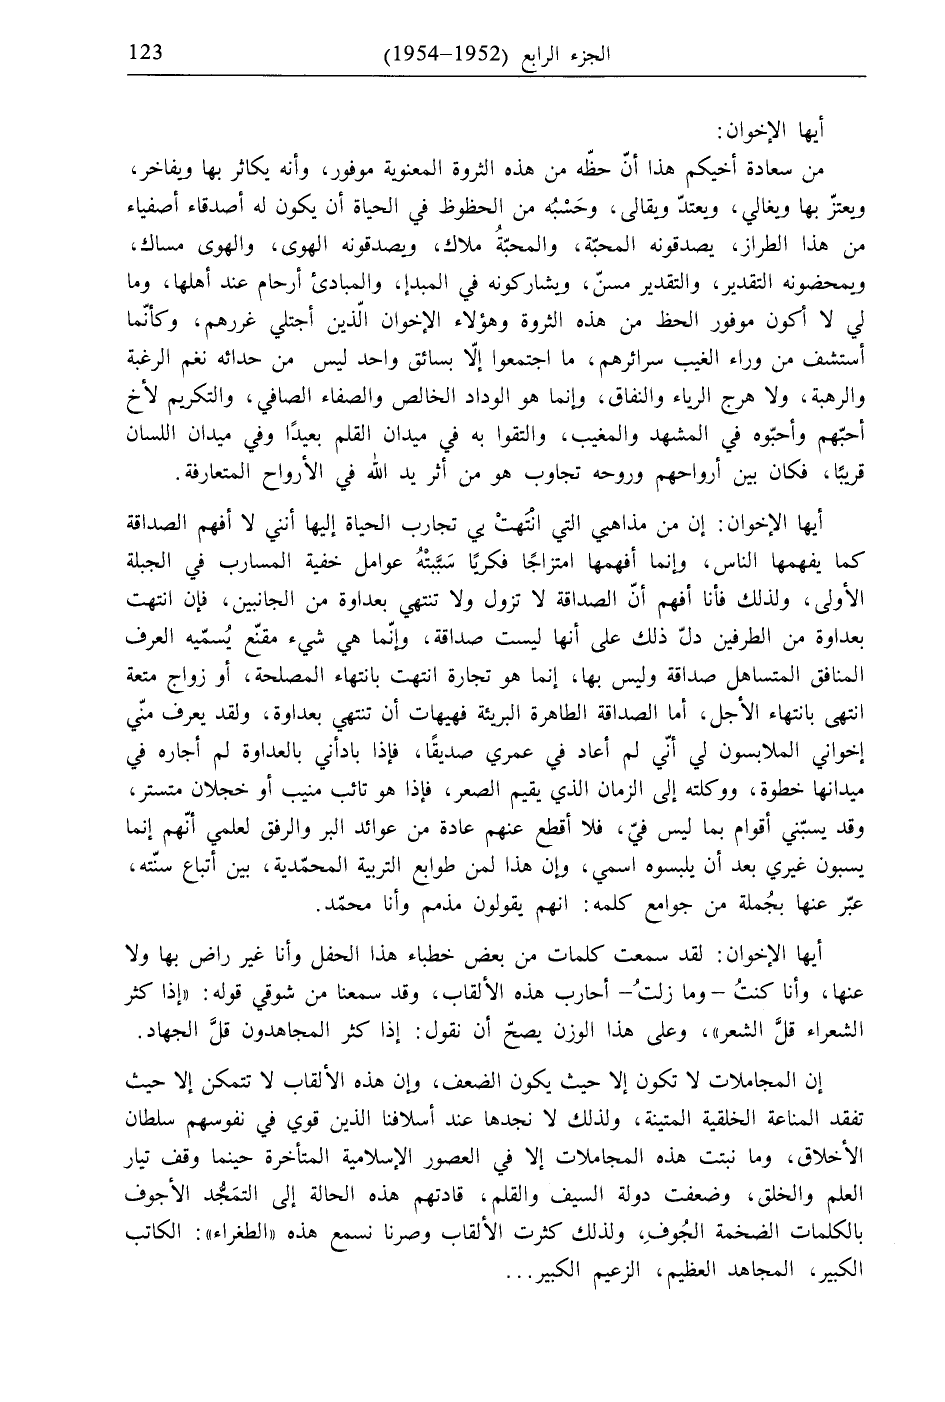 الجزء الرابع (1952-1954) 123
أيها الإخوان:
من سعادة أخيكم هذا أنّ حظّه من هذه الثروة المعنوية موفور، وأنه يكاثر بها ويفاخر،
ويعتزّ بها ويغالي، ويعتدّ ويقالى، وحَسْبُه من الحظوظ في الحياة أن يكون له أصدقاء أصفياء
من هذا الطراز، يصدقونه المحبّة، والمحبّةُ ملاك، ويصدقونه الهوى، والهوى مساك،
ويمحضونه التقدير، والتقدير مسنّ، ويشاركونه في المبدإ، والمبادئ أرحام عند أهلها، وما
لي لا أكون موفور الحظ من هذه الثروة وهؤلاء الإخوان الّذين أجتلي غررهم، وكأنّما
أستشف من وراء الغيب سرائرهم، ما اجتمعوا إلّا بسائق واحد ليس من حدائه نغم الرغبة
والرهبة، ولا هرج الرياء والنفاق، وإنما هو الوداد الخالص والصفاء الصافي، والتكريم لأخ
أحبّهم وأحبّوه في المشهد والمغيب، والتقوا به في ميدان القلم بعيدًا وفي ميدان اللسان
قريبًا، فكان بين أرواحهم وروحه تجاوب هو من أثر يد الله في الأرواح المتعارفة.
أيها الإخوان: إن من مذاهبي التي انْتَهتْ بي تجارب الحياة إليها أنني لا أفهم الصداقة
كما يفهمها الناس، وإنما أفهمها امتزاجًا فكريًا سَبَّبتْهُ عوامل خفية المسارب في الجبلة
الأولى، ولذلك فأنا أفهم أنّ الصداقة لا تزول ولا تنتهي بعداوة من الجانبين، فإن انتهت
بعداوة من الطرفين دلّ ذلك على أنها ليست صداقة، وإنّما هي شيء مقنّع يُسمّيه العرف
المنافق المتساهل صداقة وليس بها، إنما هو تجارة انتهت بانتهاء المصلحة، أو زواج متعة
انتهى بانتهاء الأجل، أما الصداقة الطاهرة البريئة فهيهات أن تنتهي بعداوة، ولقد يعرف منّي
إخواني الملابسون لي أنّي لم أعاد في عمري صديقًا، فإذا بادأني بالعداوة لم أجاره في
ميدانها خطوة، ووكلته إلى الزمان الذي يقيم الصعر، فإذا هو تائب منيب أو خجلان متستر،
وقد يسبّني أقوام بما ليس فيّ، فلا أقطع عنهم عادة من عوائد البر والرفق لعلمي أنّهم إنما
يسبون غيري بعد أن يلبسوه اسمي، وإن هذا لمن طوابع التربية المحمّدية، بين أتباع سنّته،
عبّر عنها بجُملة من جوامع كلمه: انهم يقولون مذمم وأنا محمّد.
أيها الإخوان: لقد سمعت كلمات من بعض خطباء هذا الحفل وأنا غير راض بها ولا
عنها، وأنا كنتُ – وما زلتُ– أحارب هذه الألقاب، وقد سمعنا من شوقي قوله: «إذا كثر
الشعراء قلَّ الشعر»، وعلى هذا الوزن يصحّ أن نقول: إذا كثر المجاهدون قلَّ الجهاد.
إن المجاملات لا تكون إلا حيث يكون الضعف، وإن هذه الألقاب لا تتمكن إلا حيث
تفقد المناعة الخلقية المتينة، ولذلك لا نجدها عند أسلافنا الذين قوي في نفوسهم سلطان
الأخلاق، وما نبتت هذه المجاملات إلا في العصور الإسلامية المتأخرة حينما وقف تيار
العلم والخلق، وضعفت دولة السيف والقلم، قادتهم هذه الحالة إلى التمَجُّد الأجوف
بالكلمات الضخمة الجُوفِ، ولذلك كثرت الألقاب وصرنا نسمع هذه «الطغراء»: الكاتب
الكبير، المجاهد العظيم، الزعيم الكبير...